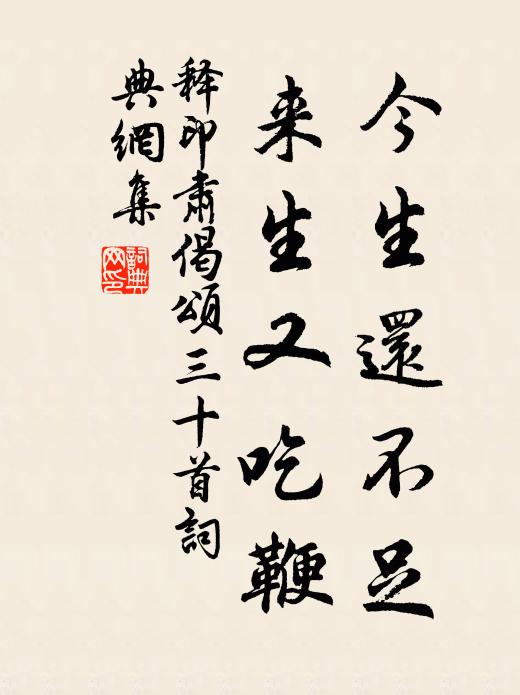 今生還不足
来生又吃鞭
释印肃偈頌三十首詞
典網集
詞典
网印